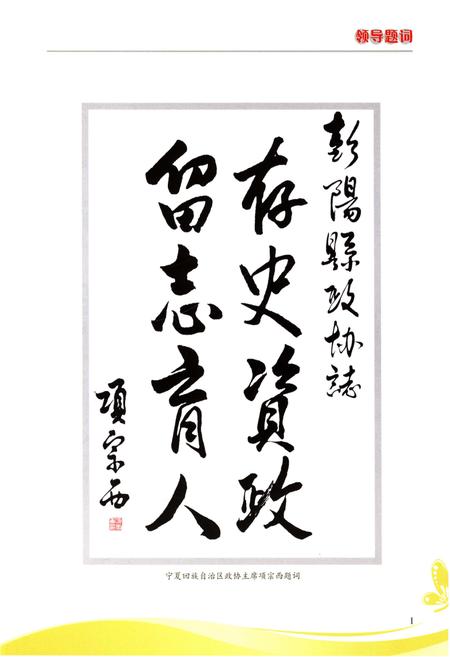 领导题词
彭陽縣政协誌
存史資政
留志育人
项宗西
宁夏回族自治区政协主席项宗西题词
1